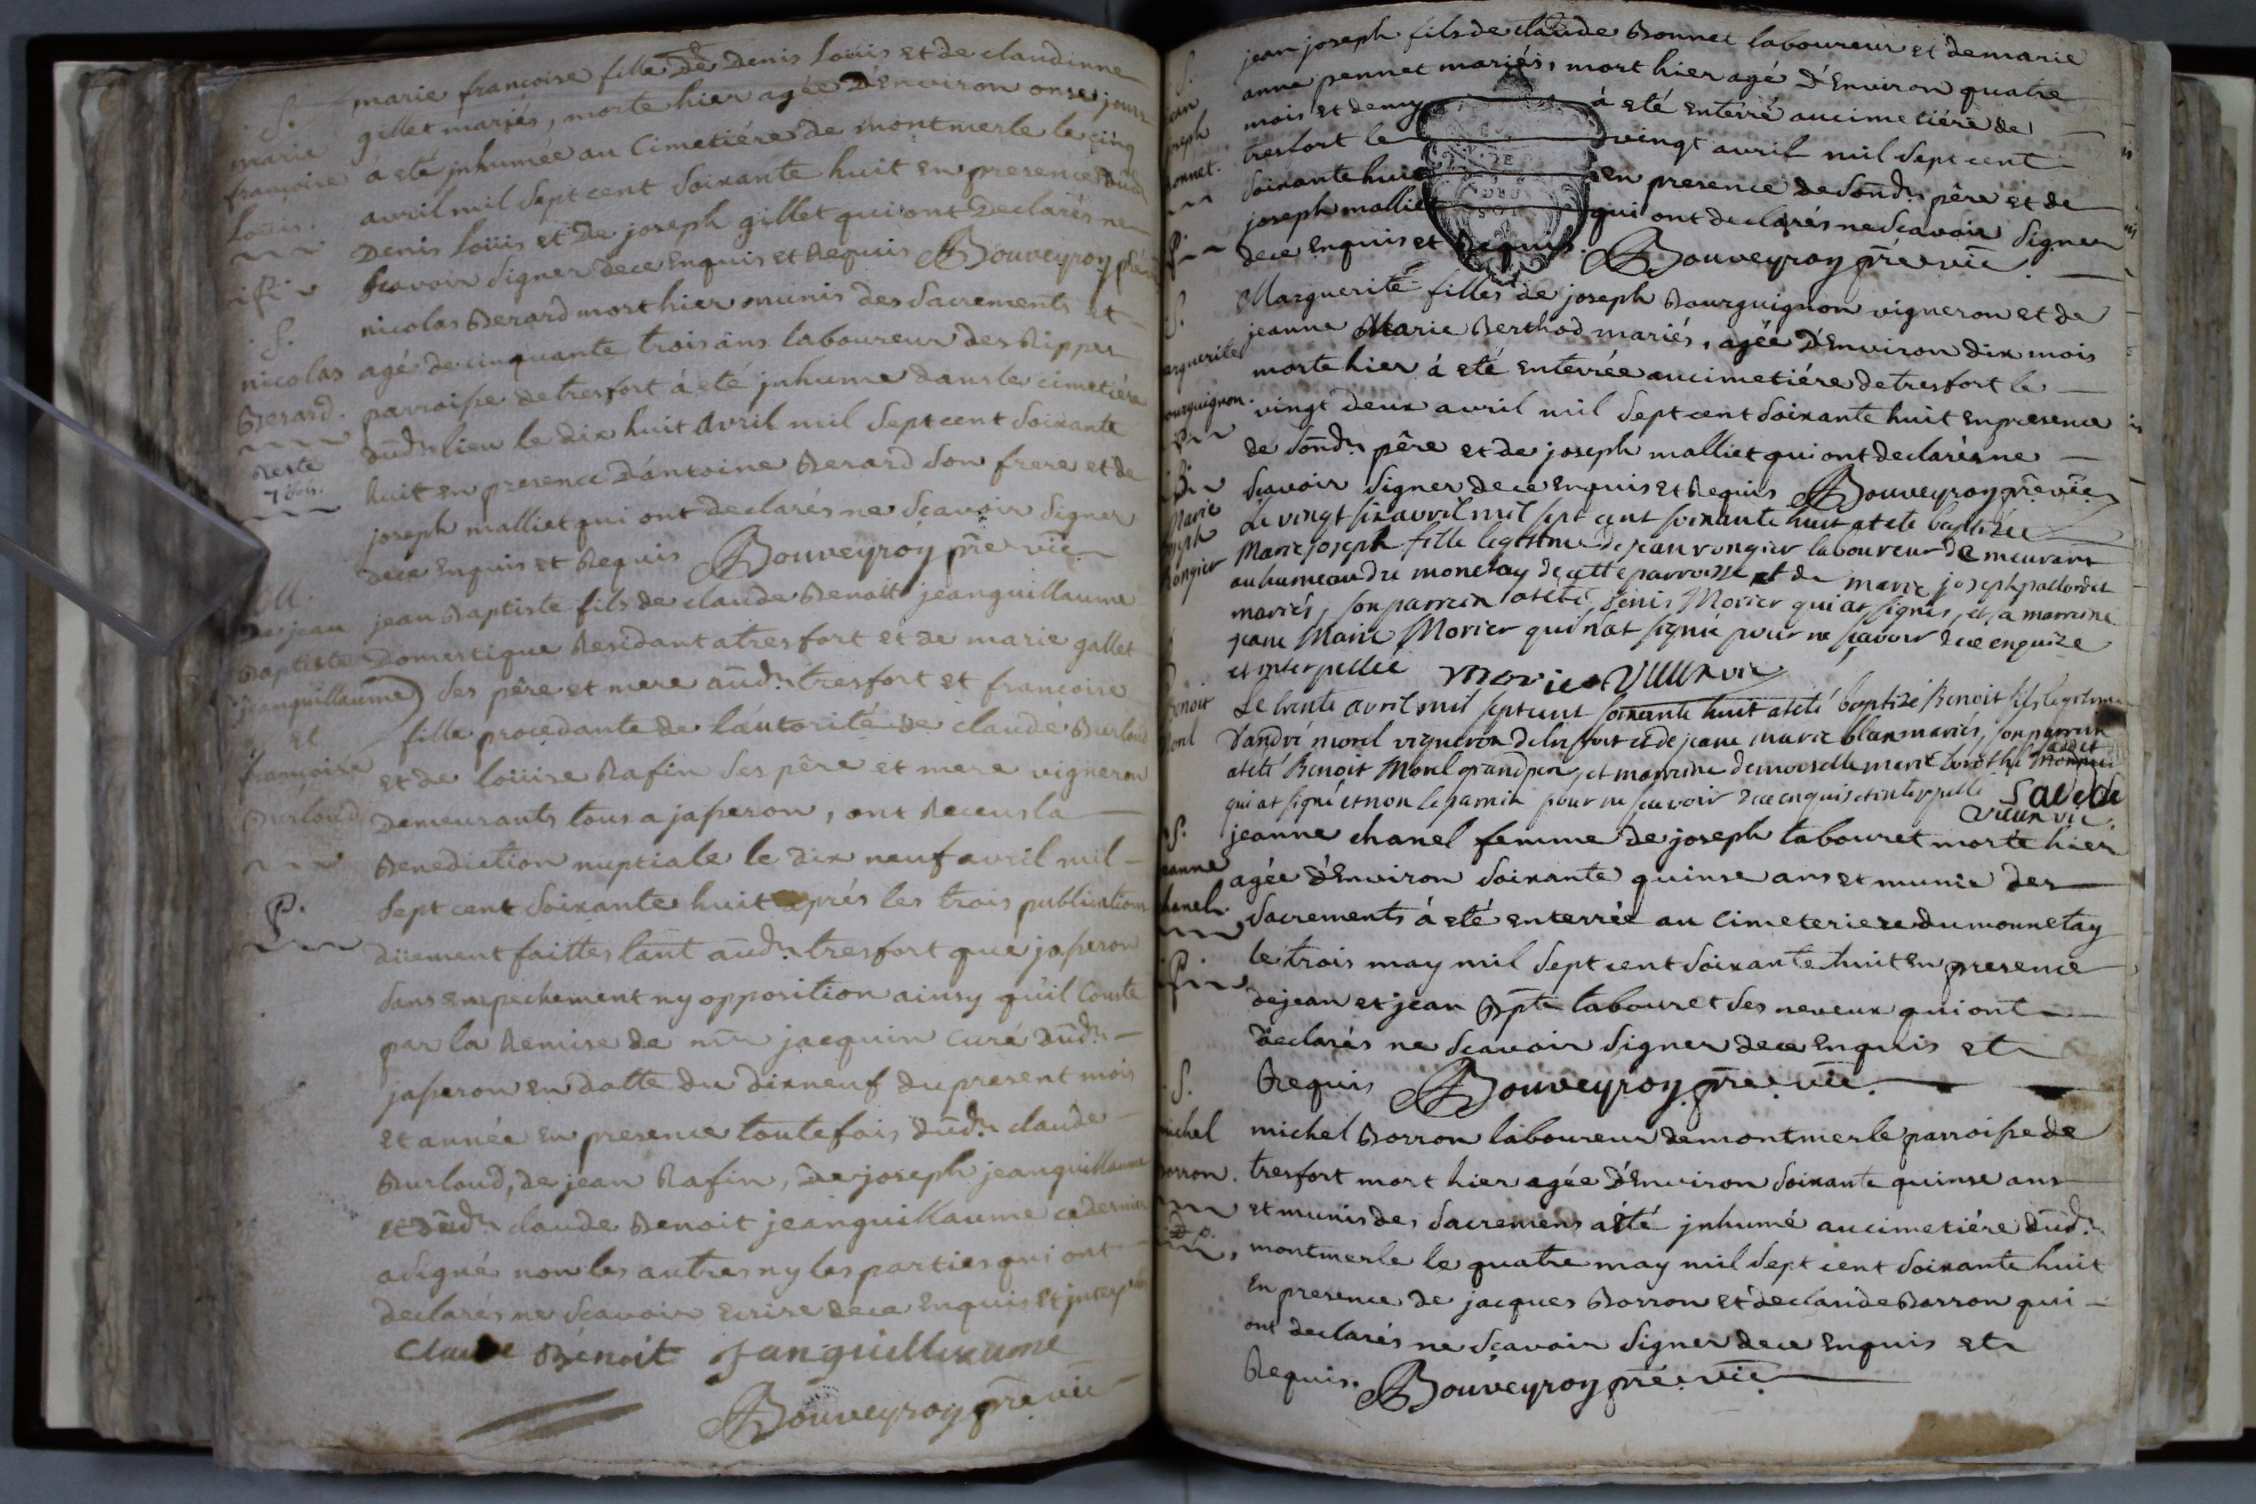 S.
marie
françoise
Loüis.
marie françoise fille de Denis Loüis et de claudinne
gillet mariés, morte hier agée D'Environ onse jours
á eté jnhumée au Cimetiére de montmerle le cinq
avril mil sept cent soixante huit en presence dud.
Denis Loüis et De joseph gillet qui ont Declarés ne
scavoir signer de ce Enquis et Requis Bouveyroy
S.
nicolas
Berard.
Reste
nicolas Berard mort hier munis des sacrements et
agé de cinquante trois âns laboureur des Rippes
parroisse de tresfort á eté jnhume dans le cimetiére
dud. lieu le dix huit Avril mil sept cent soixante
huit en presence D'antoine Berard son frere et de
joseph malliet qui ont declarés ne sçavoir signer
de ce Enquis et Requis Bouveyroy pre vic
M.
jean
Baptiste
jeanguillaume
et
françoise
Burloud
jean Baptiste fils de claude Benoitt jeanguillaume
Domestique Residant a tresfort et de marie gallet
ses pêre et mere aud. tresfort et françoise
fille procedante de l'autorité de claude Burloud
et de loüise Rafin ses pêre et mere vigneron
Demeurants tous a jasseron, ont Receus la
Benediction nuptiale le dix neuf avril mil
sept cent soixante huit aprés les trois publications
düement faittes tant aud. tresfort que jasseron
sans empechement ny opposition ainsy qu'il Conste
par la Remise de mr jacquin curé dud.
jasseron en datte du dix neuf du present mois
et année en presence toutefois dud. claude
Burloud, de jean Rafin, de joseph jeanguillaume
et dud. claude Benoit jeanguillaume ce dernier
a signé non les autres ny les parties qui ont
declarés ne sçavoir Ecrire de ce Enquis et jnterpellés
Claude Bénoit Janguillaume
Bouveyroy pre vic
S.
jean
joseph
Bonnet.
jean joseph fils de claude Bonnet laboureur et de marie
anne pennet mariés, mort hier agé d'Environ quatre
mois et demy á eté enterré au cimetiére de
tresfort le vingt avril mil sept cent
soixante huit en presence de sond. pêre et de
joseph malliet qui ont declarés ne sçavoir signer
de ce Enquis et Requis. Bouveyroy pre vic
S.
marguerite
bourguignon.
Marguerite fille de joseph Bourguignon vigneron et de
jeanne Marie Berthod mariés, agée D'Environ dix mois
morte hier á eté enterrée au cimetiére de tresfort le
vingt deux avril mil sept cent soixante huit en presence
de sond. pêre et de joseph malliet qui ont declarés ne
sçavoir signer de ce Enquis et Requis Bouveyroy pre vic
Marie
joseph
Rongier
Le vingt six avril mil sept cent soixante huit at eté baptizée
Marie joseph fille legitime de jean rongier laboureur demeurant
au hameau du monetay de cette parroisse et de marie joseph
mariés, son parrein at eté Denis Morier qui at signés, et sa marreine
jeane Marie Morier qui n'at signé pour ne sçavoir de ce enquize
et interpellée morier
Benoit
Morel
Le trente avril mil sept cent soixante huit at eté baptizé Benoit fils legitime
d'andré morel vigneron de tresfort et de jeane marie blan mariés, son parrein
at eté Benoit Morel grand pere, et marreine demoiselle marie
qui at signé et non le parrein pour ne scavoir de ce enquis et interpellé
S.
jeanne
chanel
jeanne chanel femme de joseph tabouret morte hier
agée d'Environ soixante quinse ans et munie des
sacrements á eté enterrée au cimeteriere du monnetay
le trois may mil sept cent soixante huit en presence
de jean et jean Bpte tabouret ses neveux qui ont
declarés ne sçavoir signer de ce Enquis et
Requis Bouveyroy pre vic.
S.
michel
Borron.
michel Borron laboureur de montmerle parroisse de
tresfort mort hier agée d'Environ soixante quinse ans
et munis des sacremens a eté jnhumé au cimetiére dud.
montmerle le quatre may mil sept cent soixante huit
en presence de jacques Borron et de claude Borron qui
ont declarés ne sçavoir signer de ce Enquis et
Requis. Bouveyroy pre vic